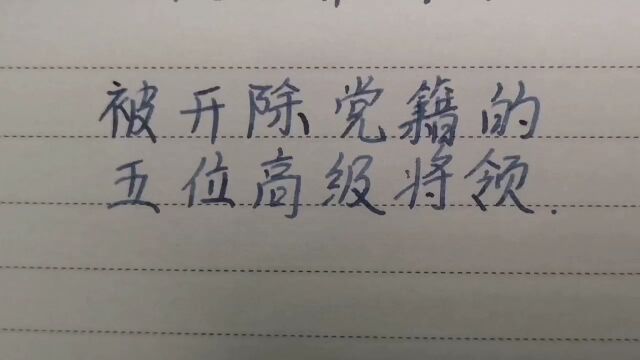 被开除党籍的
五位高级将领.